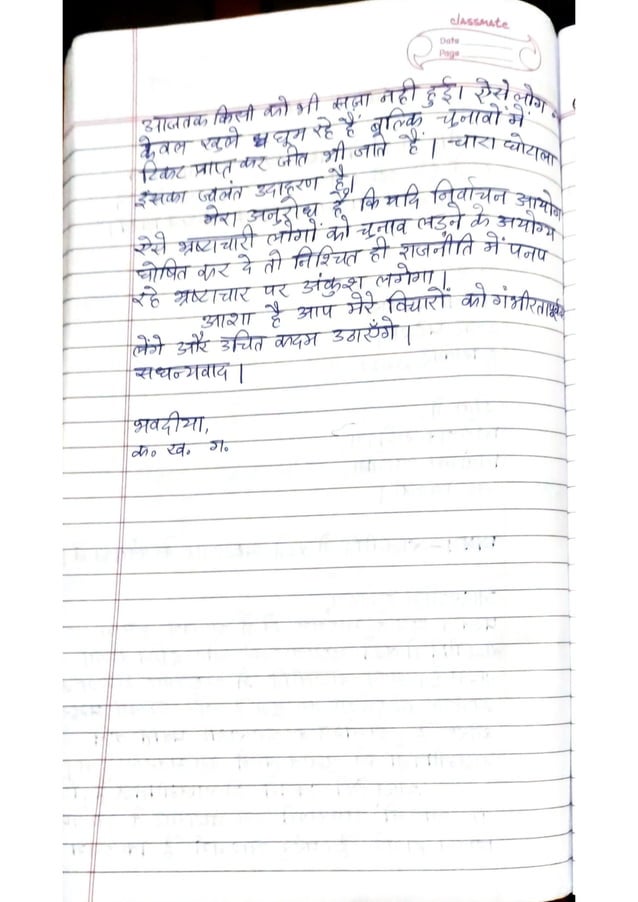 classmate
Date
Page
आजतक किसी को भी सज़ा नही हुई। ऐसे लोग न
केवल खुले घूम रहे हैं बल्कि चुनावों में
टिकट प्राप्त कर जीत भी जाते हैं। चारा घोटाला
इसका ज्वलंत उदाहरण है।
मेरा अनुरोध है कि यदि निर्वाचन आयोग
ऐसे भ्रष्टाचारी लोगों को चुनाव लड़ने के अयोग्य
घोषित कर दे तो निश्चित ही राजनीति में पनप
रहे भ्रष्टाचार पर अंकुश लगेगा।
आशा है आप मेरे विचारों को गंभीरतापूर्वक
लेंगे और उचित कदम उठाएँगे।
सधन्यवाद।
भवदीया,
क॰ ख॰ ग॰